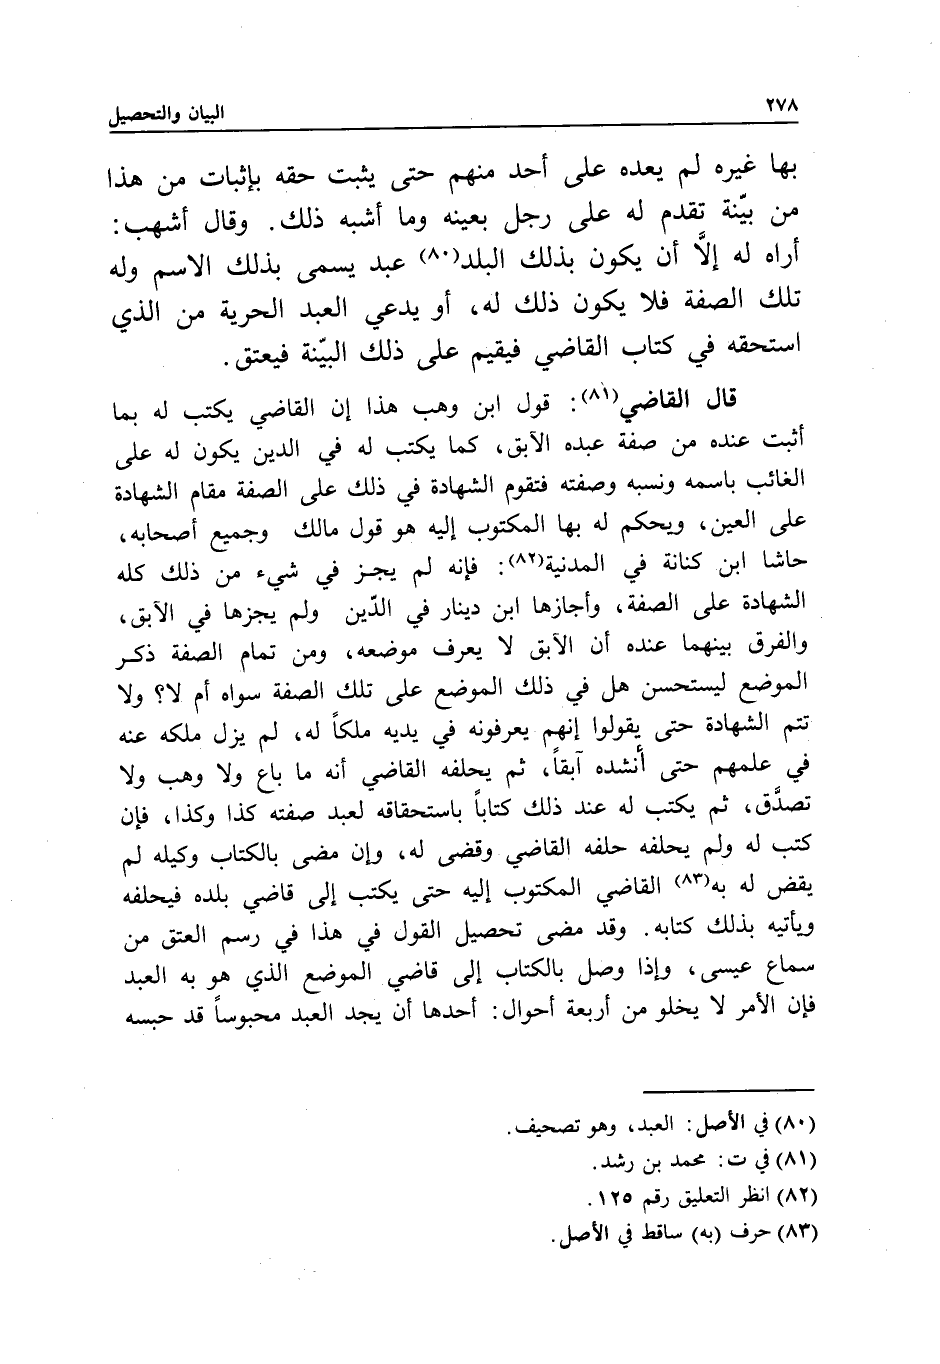 ٢٧٨
البيان والتحصيل
بها غيره لم يعده على أحد منهم حتى يثبت حقه بإثبات من هذا
من بيّنة تقدم له على رجل بعينه وما أشبه ذلك. وقال أشهب:
أراه له إلاَّ أن يكون بذلك البلد(٨٠) عبد يسمى بذلك الاسم وله
تلك الصفة فلا يكون ذلك له، أو يدعي العبد الحرية من الذي
استحقه في كتاب القاضي فيقيم على ذلك البيّنة فيعتق.
قال القاضي(٨١): قول ابن وهب هذا إن القاضي يكتب له بما
أثبت عنده من صفة عبده الآبق، كما يكتب له في الدين يكون له على
الغائب باسمه ونسبه وصفته فتقوم الشهادة في ذلك على الصفة مقام الشهادة
على العين، ويحكم له بها المكتوب إليه هو قول مالك وجميع أصحابه،
حاشا ابن كنانة في المدنية(٨٢): فإنه لم يجز في شيء من ذلك كله
الشهادة على الصفة، وأجازها ابن دينار في الدّين ولم يجزها في الآبق،
والفرق بينهما عنده أن الآبق لا يعرف موضعه، ومن تمام الصفة ذكر
الموضع ليستحسن هل في ذلك الموضع على تلك الصفة سواه أم لا؟ ولا
تتم الشهادة حتى يقولوا إنهم يعرفونه في يديه ملكاً له، لم يزل ملكه عنه
في علمهم حتى أنشده آبقاً، ثم يحلفه القاضي أنه ما باع ولا وهب ولا
تصدَّق، ثم يكتب له عند ذلك كتاباً باستحقاقه لعبد صفته كذا وكذا، فإن
كتب له ولم يحلفه حلفه القاضي وقضى له، وإن مضى بالكتاب وكيله لم
يقض له به(٨٣) القاضي المكتوب إليه حتى يكتب إلى قاضي بلده فيحلفه
ويأتيه بذلك كتابه. وقد مضى تحصيل القول في هذا في رسم العتق من
سماع عيسى، وإذا وصل بالكتاب إلى قاضي الموضع الذي هو به العبد
فإن الأمر لا يخلو من أربعة أحوال: أحدها أن يجد العبد محبوساً قد حبسه
(٨٠) في الأصل: العبد، وهو تصحيف.
(٨١) في ت: محمد بن رشد.
(٨٢) انظر التعليق رقم ١٢٥.
(٨٣) حرف (به) ساقط في الأصل.